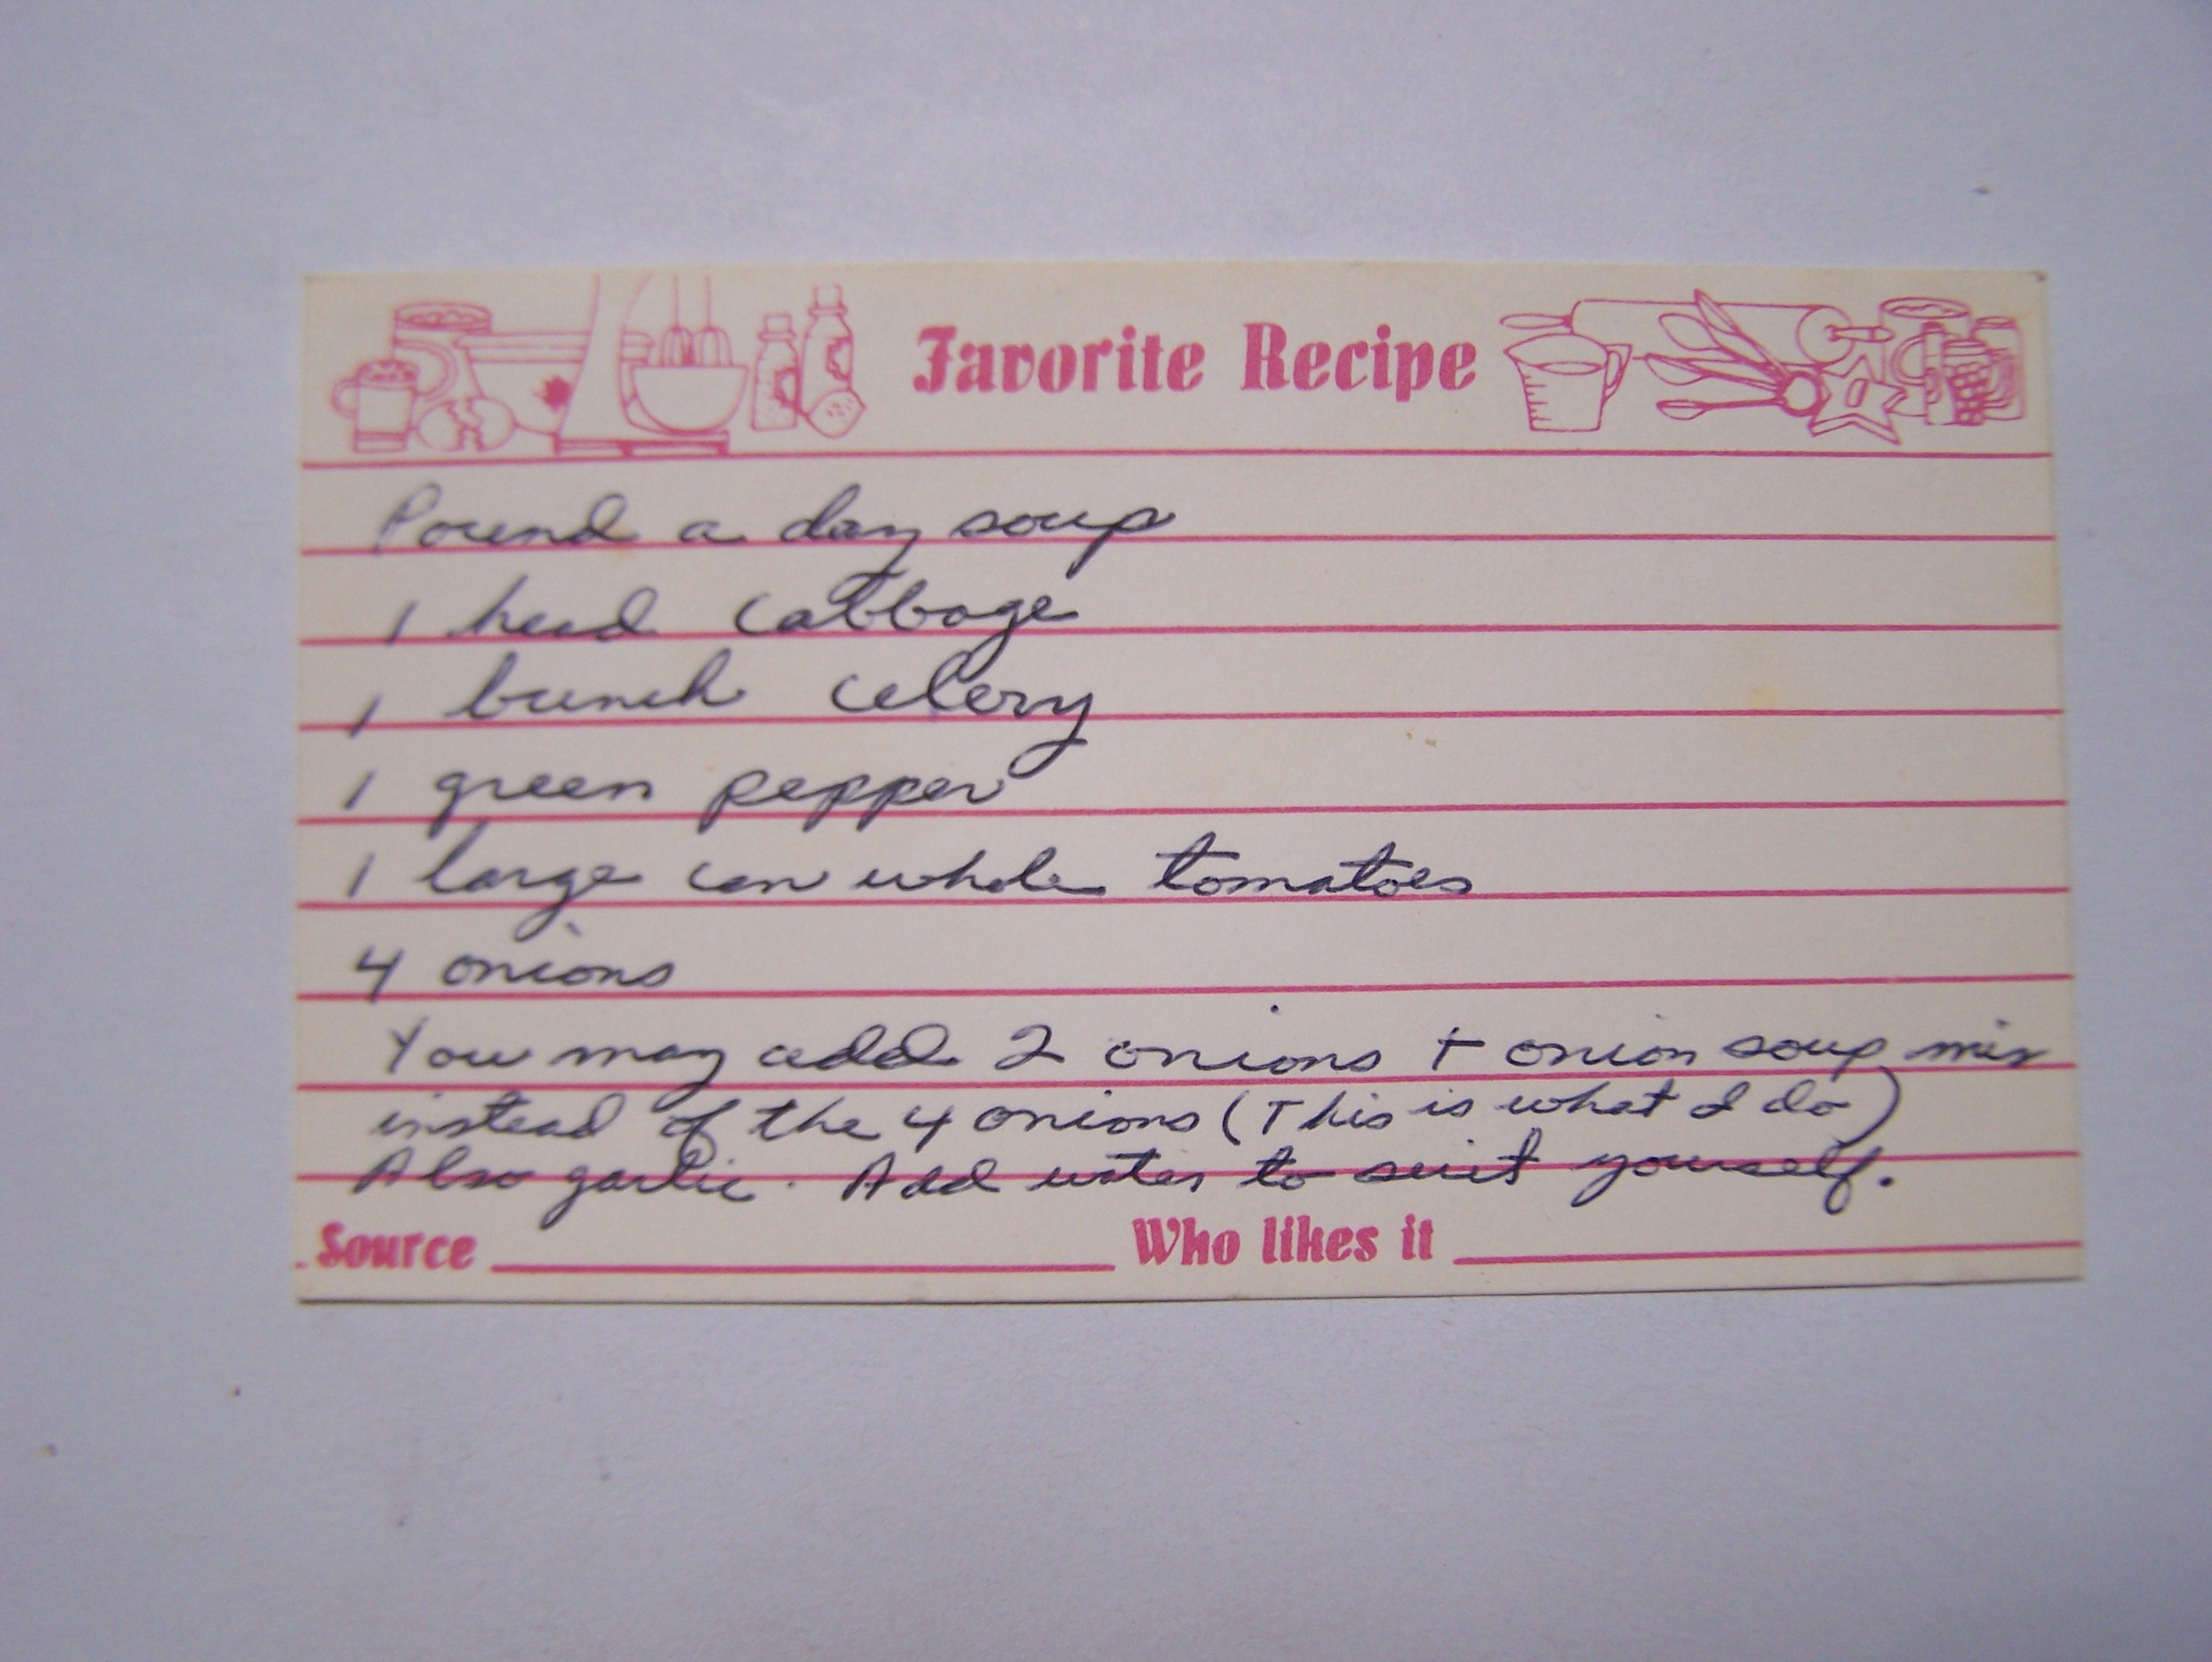 Favorite Recipe
Pound a day soup
1 head cabbage
1 bunch celery
1 green pepper
1 large can whole tomatoes
4 onions
You may add 2 onions + onion soup mix
instead of the 4 onions (This is what I do)
Also garlic. Add water to suit yourself.
Source Who likes it